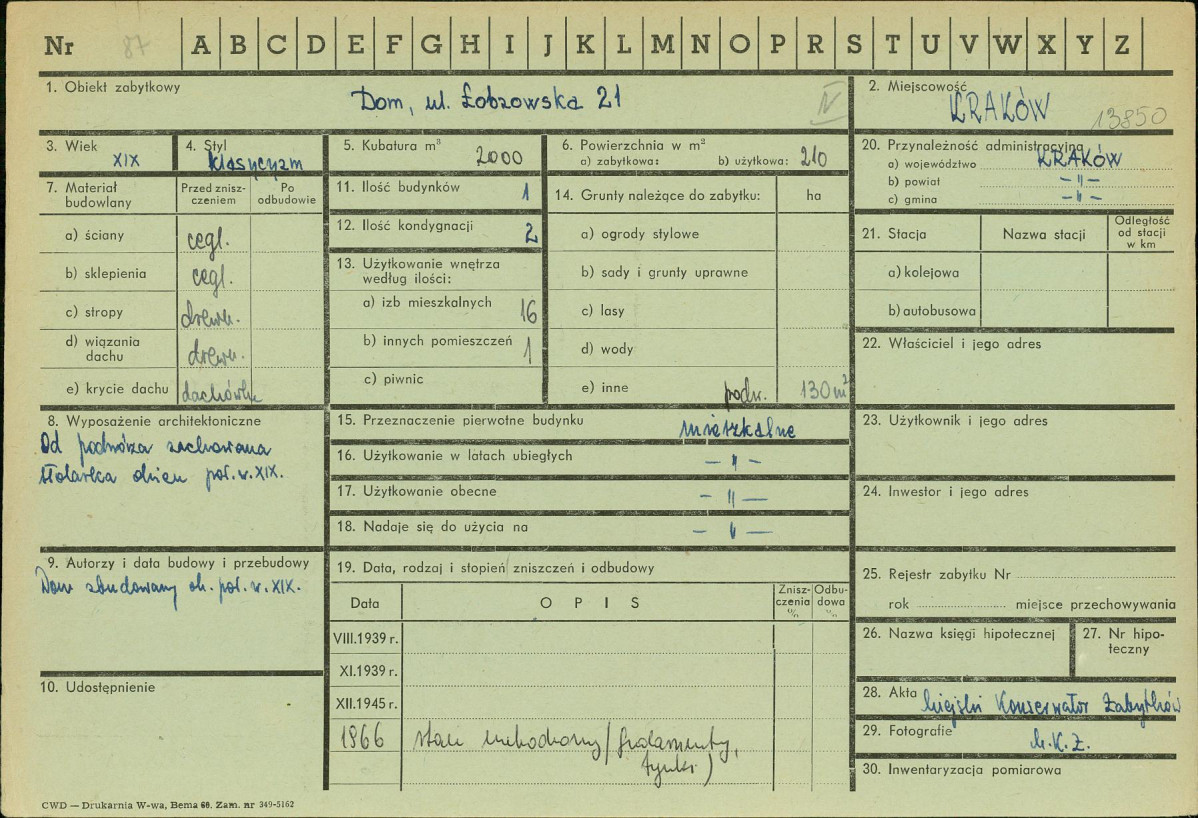 Nr 87 A B C D E F G H I J K L M N O P R S T U V W X Y Z
1. Obiekt zabytkowy
Dom, ul. Łobzowska 21
IV
2. Miejscowość
KRAKÓW 13850
3. Wiek
XIX
4. Styl
klasycyzm
5. Kubatura m³ 2000
6. Powierzchnia w m²
a) zabytkowa: b) użytkowa: 210
20. Przynależność administracyjna
a) województwo KRAKÓW
b) powiat — " —
c) gmina — " —
7. Materiał budowlany
Przed zniszczeniem
Po odbudowie
a) ściany cegl.
b) sklepienia cegl.
c) stropy drewn.
d) wiązania dachu drewn.
e) krycie dachu dachówka
11. Ilość budynków 1
12. Ilość kondygnacji 2
13. Użytkowanie wnętrza
według ilości:
a) izb mieszkalnych 16
b) innych pomieszczeń 1
c) piwnic
14. Grunty należące do zabytku: ha
a) ogrody stylowe
b) sady i grunty uprawne
c) lasy
d) wody
e) inne podw. 130 m²
21. Stacja
Nazwa stacji
Odległość
od stacji
w km
a) kolejowa
b) autobusowa
22. Właściciel i jego adres
8. Wyposażenie architektoniczne
Od podwórza zachowana
stolarka okien poł. w. XIX.
15. Przeznaczenie pierwotne budynku mieszkalne
16. Użytkowanie w latach ubiegłych — " —
17. Użytkowanie obecne — " —
18. Nadaje się do użycia na — " —
23. Użytkownik i jego adres
24. Inwestor i jego adres
9. Autorzy i data budowy i przebudowy
Dom zbudowany ok. poł. w. XIX.
10. Udostępnienie
19. Data, rodzaj i stopień zniszczeń i odbudowy
Data
OPIS
Zniszczenia %
Odbudowa %
VIII.1939 r.
XI.1939 r.
XII.1945 r.
1966 stan
tynki)
25. Rejestr zabytku Nr
rok miejsce przechowywania
26. Nazwa księgi hipotecznej
27. Nr hipoteczny
28. Akta Miejski Konserwator Zabytków
29. Fotografie M.K.Z.
30. Inwentaryzacja pomiarowa
CWD — Drukarnia W-wa, Bema 60. Zam. nr 349-5162